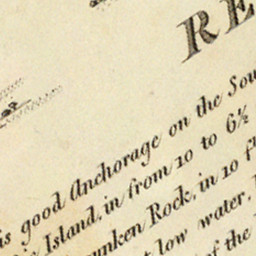 RE
is good Anchorage on the Sou
Island, in from 10 to 6½
unken Rock, in 10 f
low water.
of the